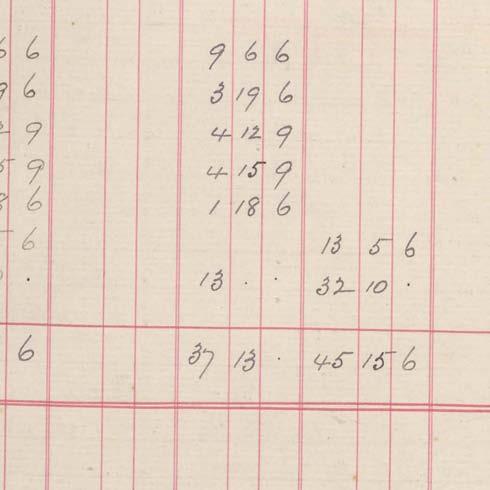 6 6 9 6 6
9 6 3 19 6
2 9 4 12 9
5 9 4 15 9
8 6 1 18 6
6 13 5 6
· 13 · · 32 10 ·
6 37 13 · 45 15 6